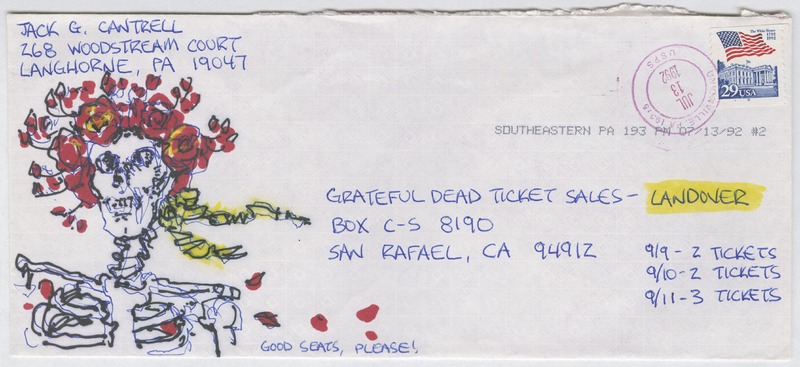 JACK G. CANTRELL
268 WOODSTREAM COURT
LANGHORNE, PA 19047
USPS
JUL
13
1992
29 USA
SOUTHEASTERN PA 193 PM 07/13/92 #2
GRATEFUL DEAD TICKET SALES - LANDOVER
BOX C-S 8190
SAN RAFAEL, CA 94912
9/9 - 2 TICKETS
9/10 - 2 TICKETS
9/11 - 3 TICKETS
GOOD SEATS, PLEASE!